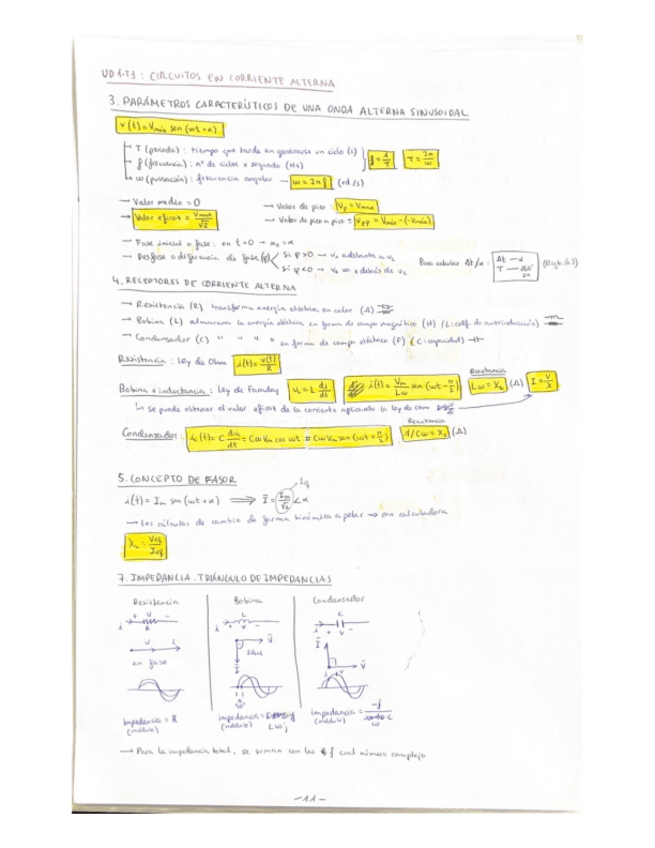 UD1.T3: CIRCUITOS EN CORRIENTE ALTERNA
3. PARÁMETROS CARACTERÍSTICOS DE UNA ONDA ALTERNA SINUSOIDAL
v(t) = Vmáx sen (ωt + α)
T (periodo): tiempo que tarda en generarse un ciclo (s)
f (frecuencia): nº de ciclos x segundo (Hz) f = 1/T T = 2π/ω
ω (pulsación): frecuencia angular → ω = 2πf (rd/s)
→ Valor medio = 0 → Valor de pico: Vp = Vmáx
→ Valor eficaz = Vmáx/√2 → Valor de pico a pico: Vpp = Vmáx - (-Vmáx)
→ Fase inicial o fase: en t=0 → α0 = α
→ Desfase o diferencia de fase (φ) Si φ>0 → v1 adelanta a v2 Para calcular Δt/α: Δt — α (Regla de 3)
Si φ<0 → v1 va x detrás de v2 T — 360º 2π
4. RECEPTORES DE CORRIENTE ALTERNA
→ Resistencia (R) transforma energía eléctrica en calor (Ω)
→ Bobina (L) almacena la energía eléctrica en forma de campo magnético (H) (L: coef. de autoinducción)
→ Condensador (C) " " " " en forma de campo eléctrico (F) (C: capacidad)
Resistencia: Ley de Ohm i(t) = v(t)/R
Reactancia
Bobina o inductancia: Ley de Faraday vL = L di/dt i(t) = Vm/Lω sen (ωt - π/2) Lω = XL (Ω) I = V/X
↳ se puede obtener el valor eficaz de la corriente aplicando la ley de ohm
Reactancia
Condensador: i(t) = C dv/dt = CωVm cos ωt = CωVm sen (ωt + π/2) 1/Cω = Xc (Ω)
5. CONCEPTO DE FASOR
Ief
i(t) = Im sen (ωt + α) ⟹ Ī = Im/√2 ∠α
→ Los cálculos de cambio de forma binómica a polar → con calculadora
XL = Vef/Ief
7. IMPEDANCIA. TRIÁNGULO DE IMPEDANCIAS
Resistencia Bobina Condensador
+ V - + V - + V -
i R i L i C
V I
en fase
V I Ideal
I V
90º
Impedancia = R Impedancia = Lωj Impedancia = -j
(módulo) (módulo) (módulo)
→ Para la impedancia total, se suman con las j cual número complejo
-11-